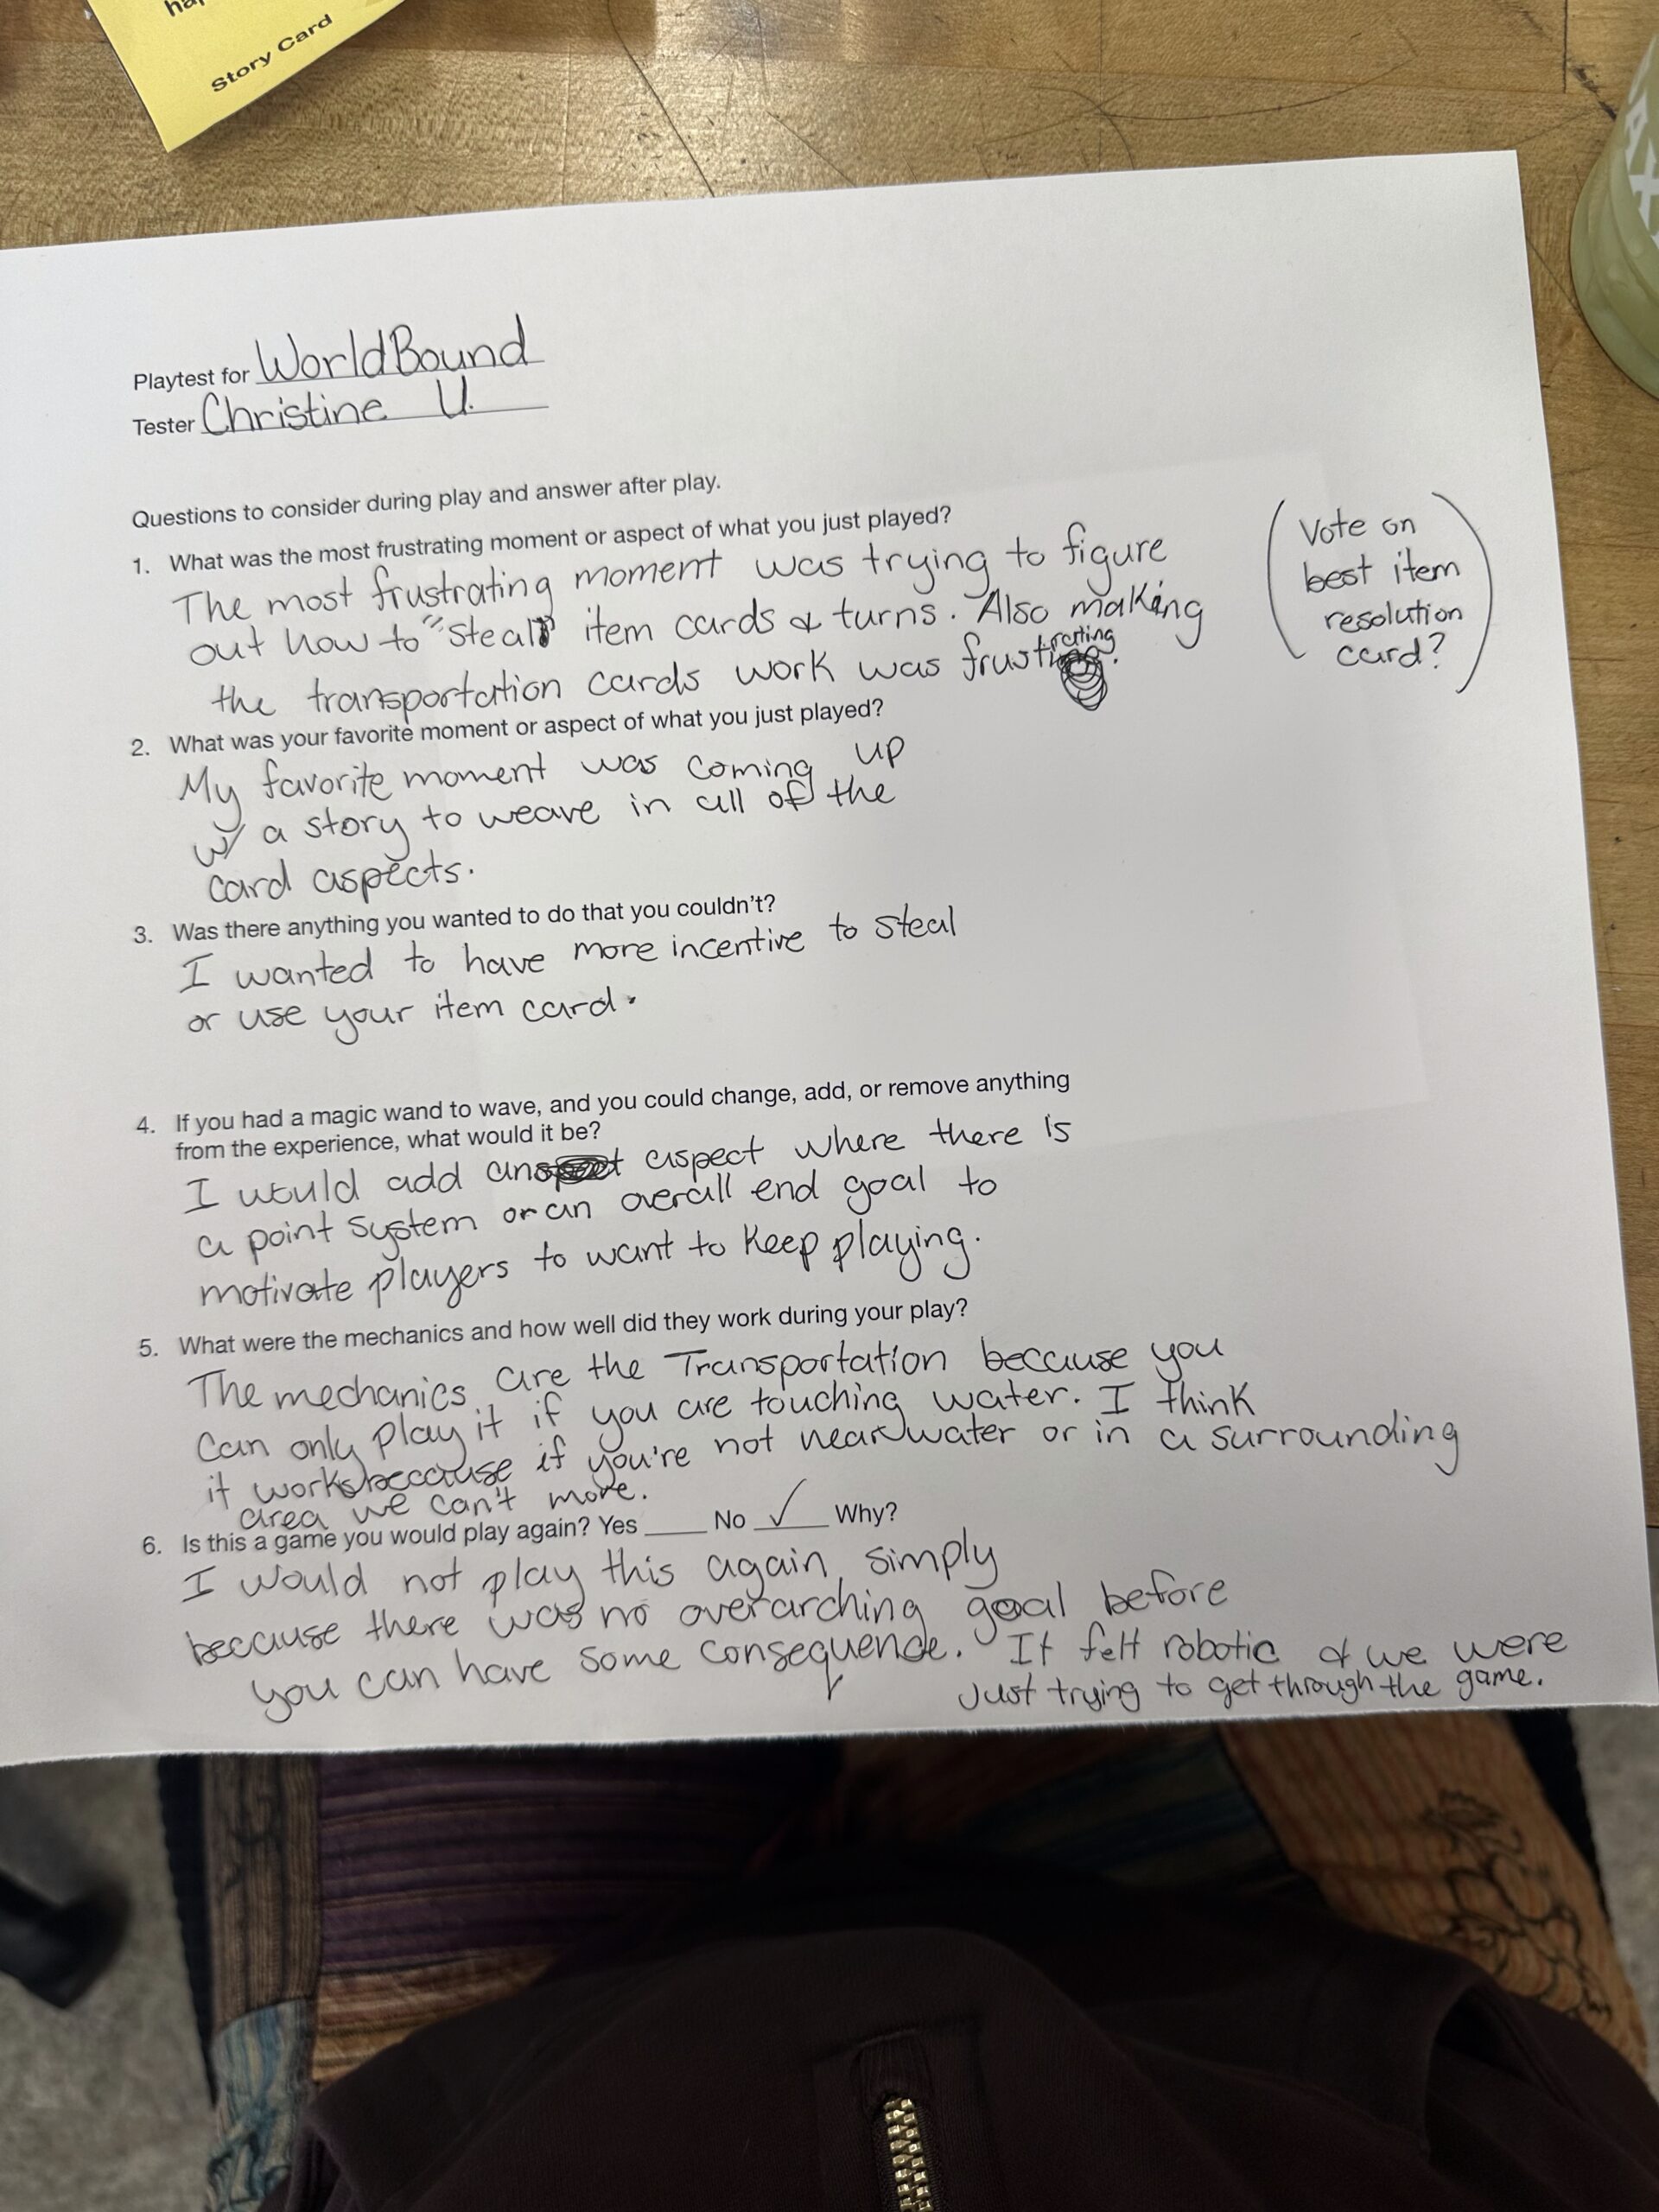 Story Card
Playtest for WorldBound
Tester Christine U.
Questions to consider during play and answer after play.
1. What was the most frustrating moment or aspect of what you just played?
The most frustrating moment was trying to figure
out how to "steal" item cards & turns. Also making
the transportation cards work was frustrating.
(Vote on
best item
resolution
card?)
2. What was your favorite moment or aspect of what you just played?
My favorite moment was coming up
w/ a story to weave in all of the
card aspects.
3. Was there anything you wanted to do that you couldn't?
I wanted to have more incentive to steal
or use your item card.
4. If you had a magic wand to wave, and you could change, add, or remove anything
from the experience, what would it be?
I would add an aspect where there is
a point system or an overall end goal to
motivate players to want to keep playing.
5. What were the mechanics and how well did they work during your play?
The mechanics are the Transportation because you
can only play it if you are touching water. I think
it works because if you're not near water or in a surrounding
area we can't more.
6. Is this a game you would play again? Yes ____ No ✓ Why?
I would not play this again simply
because there was no overarching goal before
you can have some consequence. It felt robotic & we were
just trying to get through the game.